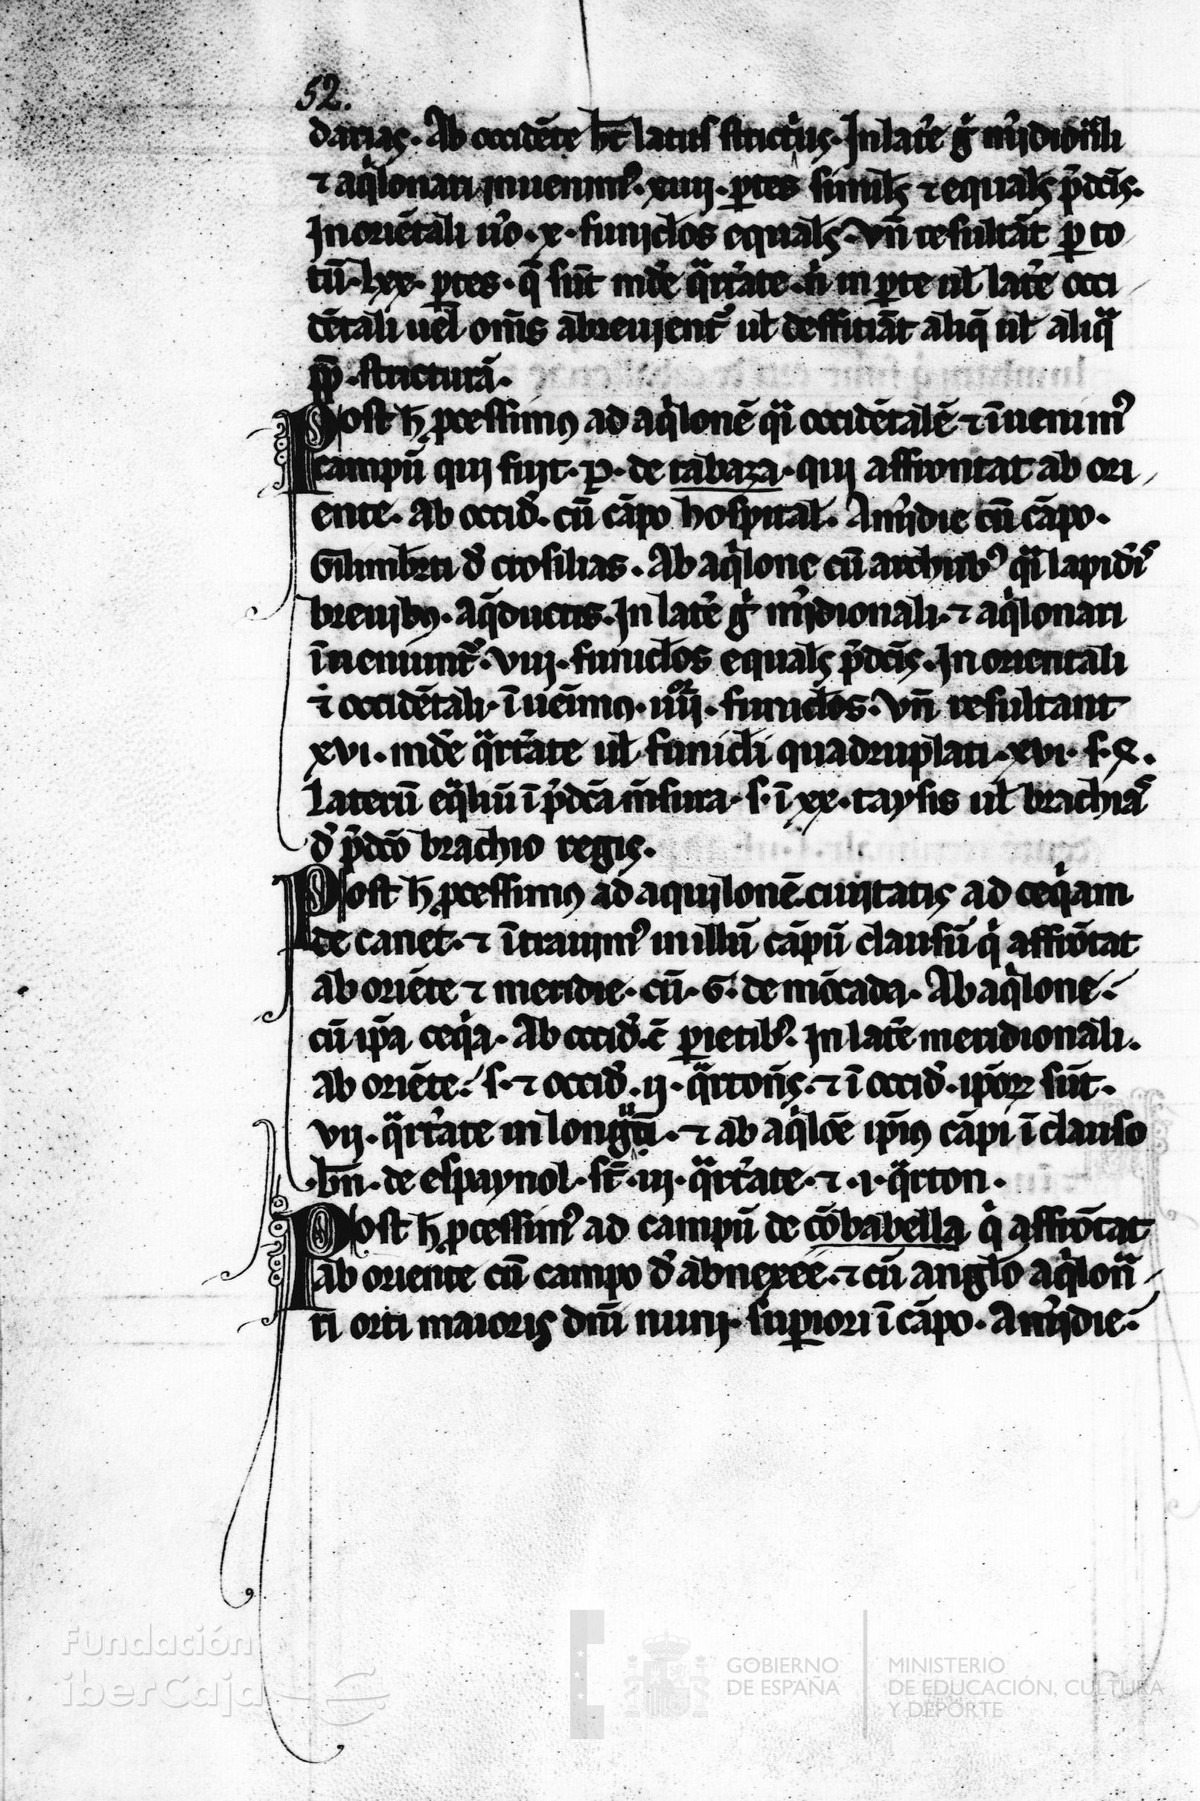 52.
darias. Ab occidēte hēt latus strictius. In late͛ g̊ m͛idionali
⁊ aq̊lonari inuenim᷒. xiiii. ꝑtes simil̄s ⁊ equal̄s p̄dc̄is.
In oriētali u͛o. x. funic̄los equal̄s. Vn̄ resultāt ꝑ to
tū. lxx. ꝑtes. q̄ sūt mde͛ q̄rt͛ate. n̊ in ꝑte ul̄ late͛ occi
dētali uel om̄s abreuient᷒ ul̄ defficiāt aliq̄ ul̄ aliq̄
ꝓp̄. stricturā.
Post h̄ ꝓcessimꝰ ad aq̊lonē q̄i occidētalē ⁊ īuenim᷒
campū qui fuit. P. de tabaza. qui affrontat ab ori
ente. Ab occid͛. cū cāpo hospital̄. A m͛idie cū cāpo.
Guilmb̄rti d͛ crosilias. Ab aq̊lone cū archub᷒ q̄i lapid͛is
breuibꝰ. aq̄ductus. In late͛ g̊ m͛idionali. ⁊ aq̊lonari
īueniunt᷒. viii. funic̄los equal̄s p̄dc̄is. In orientali
⁊ occidētali. īueīmꝰ. iiii. funic̄los. Vn̄ resultant
xvi. mde͛ q̄rt͛ate ul̄ funic̄li quadruplati. xvi. s. P.
Laterū eq̄liū ī p̄dc̄a m̄sura. s. ī xx. taysis ul̄ brachia
d͛ p̄dc̄o brachio regis.
Post h̄ ꝓcessimꝰ ad aquilonē ciuitatis ad ceq̊am
de canet. ⁊ ītrauim᷒ in illū cāpū clausū q̊ affrōtat
ab oriēte ⁊ meridie. cū. G. de mōcada. Ab aq̊lone.
cū ip̄a ceq̊a. Ab occid͛. c̄ ꝑietib᷒. In late͛ meridionali.
Ab oriēte. s. ⁊ occid͛. ii. q̄rtons. ⁊ ī occid͛. ip̄oꝝ sūt.
vii. q̄rt͛ate in long̊. ⁊ ab aq̊lōe ip̄iꝰ cāpi ī clauso
.bn̄. de espaynol. st̄. iii. q̄rt͛ate. ⁊ .i. q̄rton.
Post h̄ ꝓcessim᷒ ad campū de cōbabella q̊ affrōtat
ab oriente cū campo d͛ abnexee. ⁊ cū anglo aq̊lona
ri orti maioris dn̄i nunii. suꝑiori ī cāpo. A m͛idie.
Fundación
iberCaja
GOBIERNO
DE ESPAÑA
MINISTERIO
DE EDUCACIÓN, CULTURA
Y DEPORTE